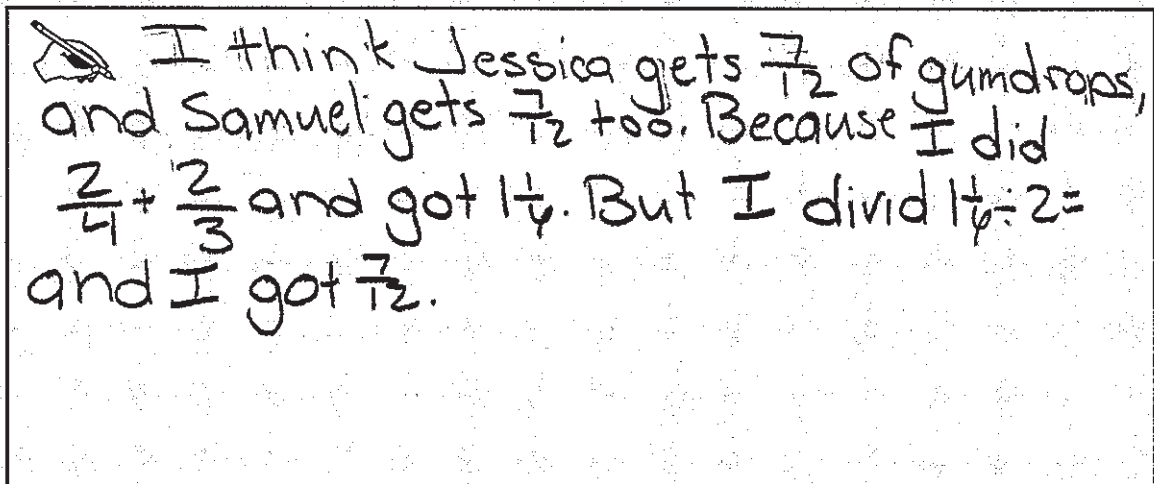 I think Jessica gets 7/12 of gumdrops,
and Samuel gets 7/12 too. Because I did
2/4 + 2/3 and got 1 1/6. But I divid 1 1/6 ÷ 2 =
and I got 7/12.